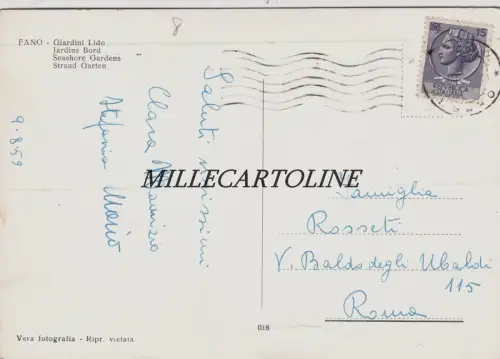 FANO - Giardini Lido
Jardins Bord
Seashore Gardens
Strand Garten
8
15
Saluti carissimi
Clara Maurizio
Stefania Mario
9-8-59
MILLECARTOLINE
Famiglia
Rosseti
V. Baldo degli Ubaldi
115
Roma
Vera fotografia - Ripr. vietata
018